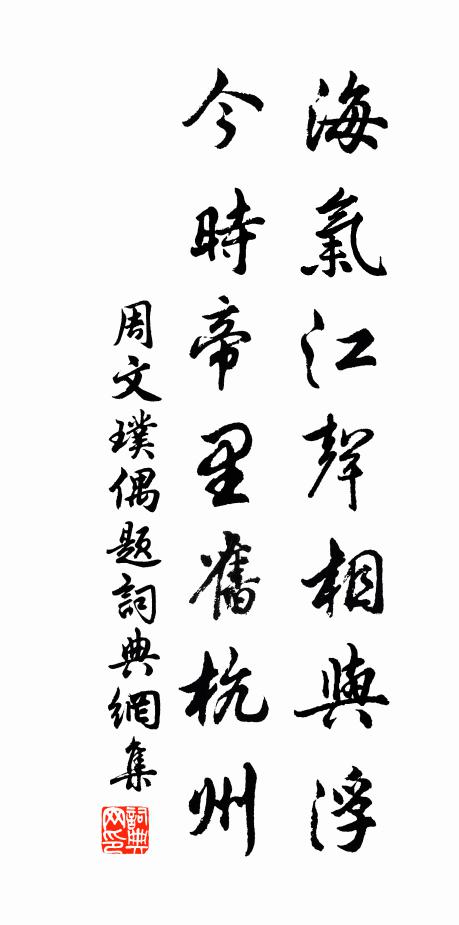 海氣江聲相與浮
今時帝里舊杭州
周文璞偶题詞典網集
詞典网印